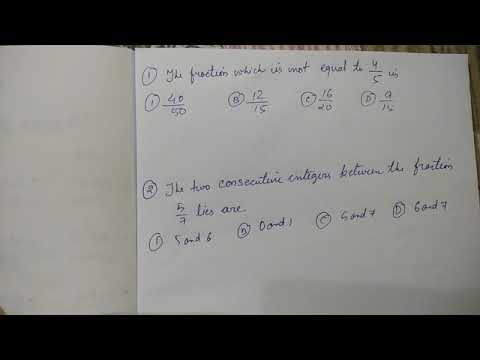 ① The fraction which is not equal to 4/5 is
① 40/50 Ⓑ 12/15 Ⓒ 16/20 Ⓓ 9/15
② The two consecutive integers between the fraction
5/7 lies are.
① 5 and 6 Ⓑ 0 and 1 Ⓒ 5 and 7 Ⓓ 6 and 7